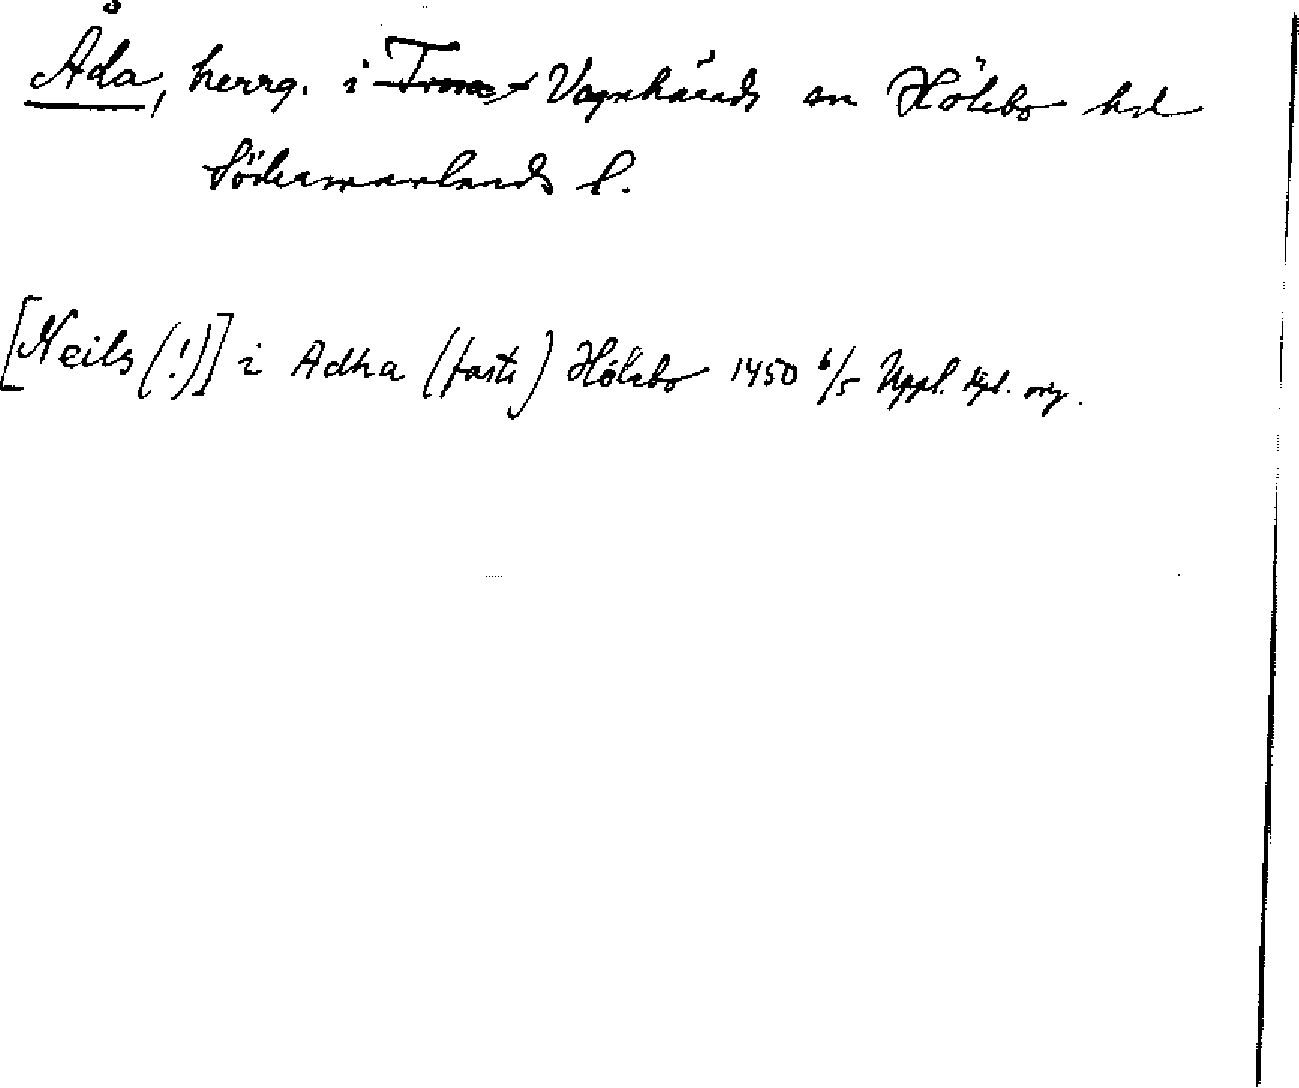 Ada, herrg. i Trosa Vagnhärads sn Hölebo hd
Södermanlands l.
[Neils (!)] i Adha (faste) Hölebo 1450 6/5 Uppl. dpl. orig.